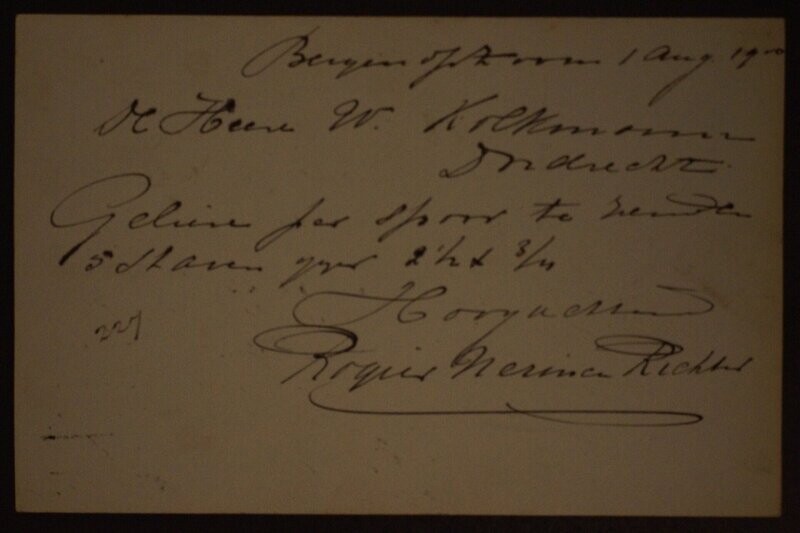 Bergen op Zoom 1 Aug. 1900
De Heer W. Kolkmann
Dordrecht.
Gelieve per spoor te zenden
5 staven yzer 2 1/2 x 3/4
Hoogachtend
Rogier Nerincx Richter
227